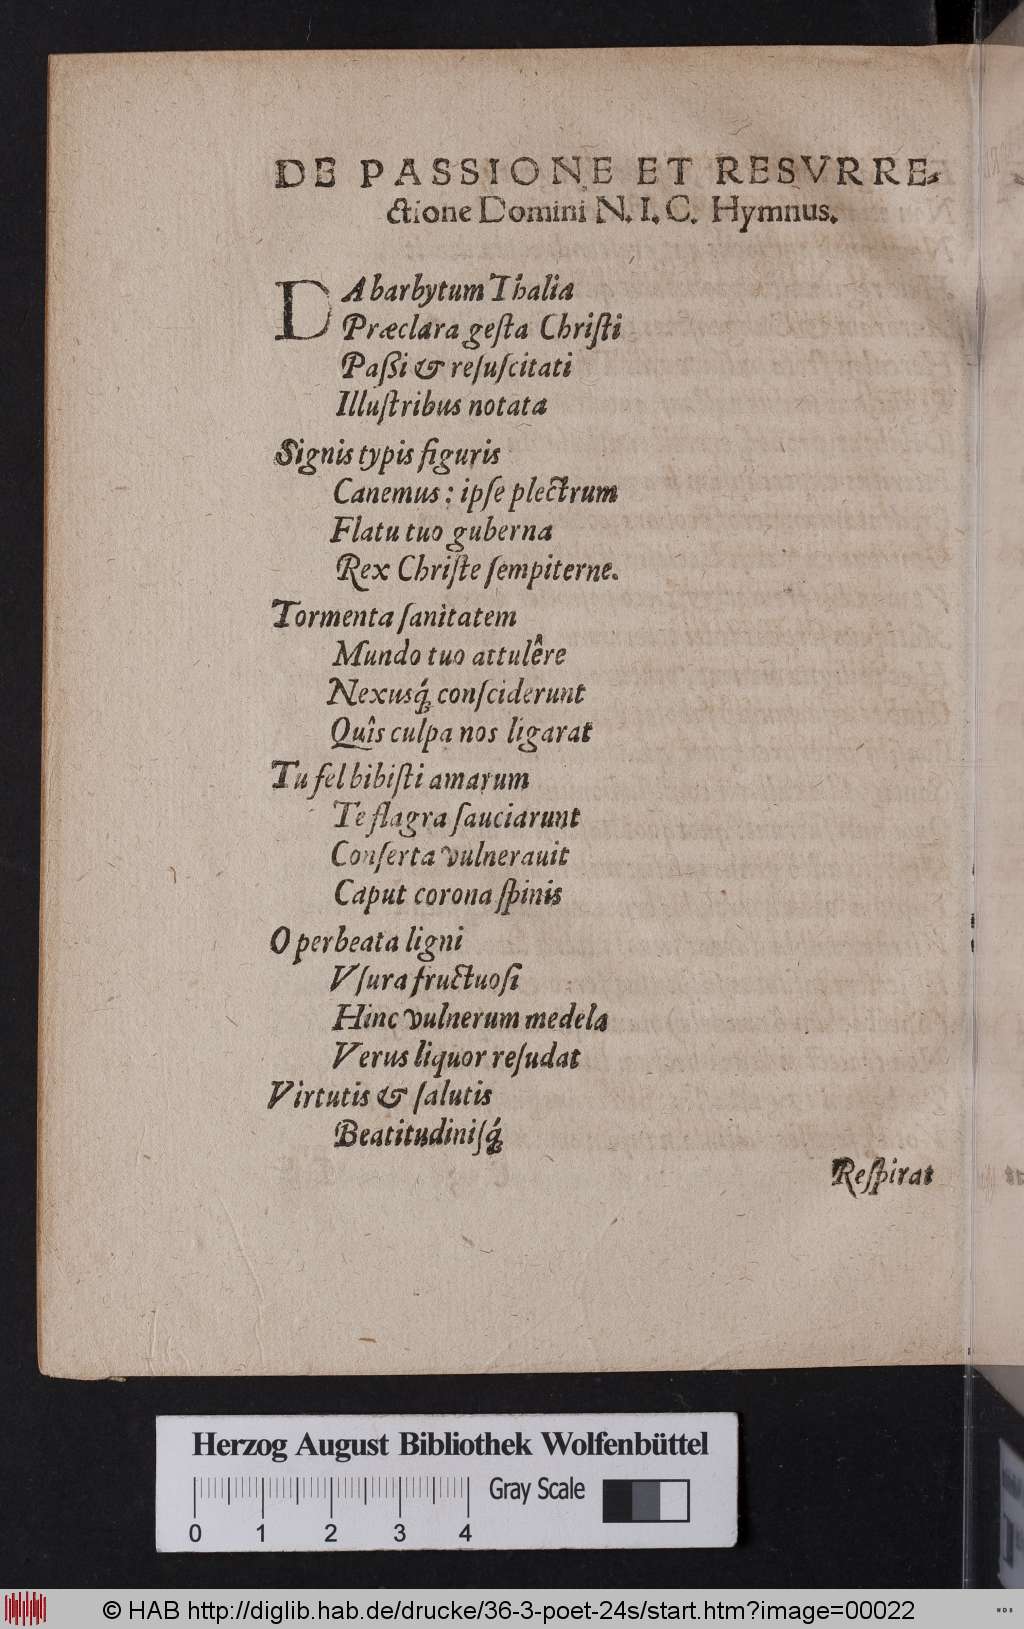 DE PASSIONE ET RESVRRE-
ctione Domini N. I. C. Hymnus.
DA barbytum Thalia
Præclara gesta Christi
Paßi & resuscitati
Illustribus notata
Signis typis figuris
Canemus: ipse plectrum
Flatu tuo guberna
Rex Christe sempiterne.
Tormenta sanitatem
Mundo tuo attulêre
Nexusq́; consciderunt
Quîs culpa nos ligarat
Tu fel bibisti amarum
Te flagra sauciarunt
Conserta vulnerauit
Caput corona spinis
O perbeata ligni
Vsura fructuosi
Hinc vulnerum medela
Verus liquor resudat
Virtutis & salutis
Beatitudinisq́;
Respirat
Herzog August Bibliothek Wolfenbüttel
Gray Scale
0 1 2 3 4
© HAB http://diglib.hab.de/drucke/36-3-poet-24s/start.htm?image=00022